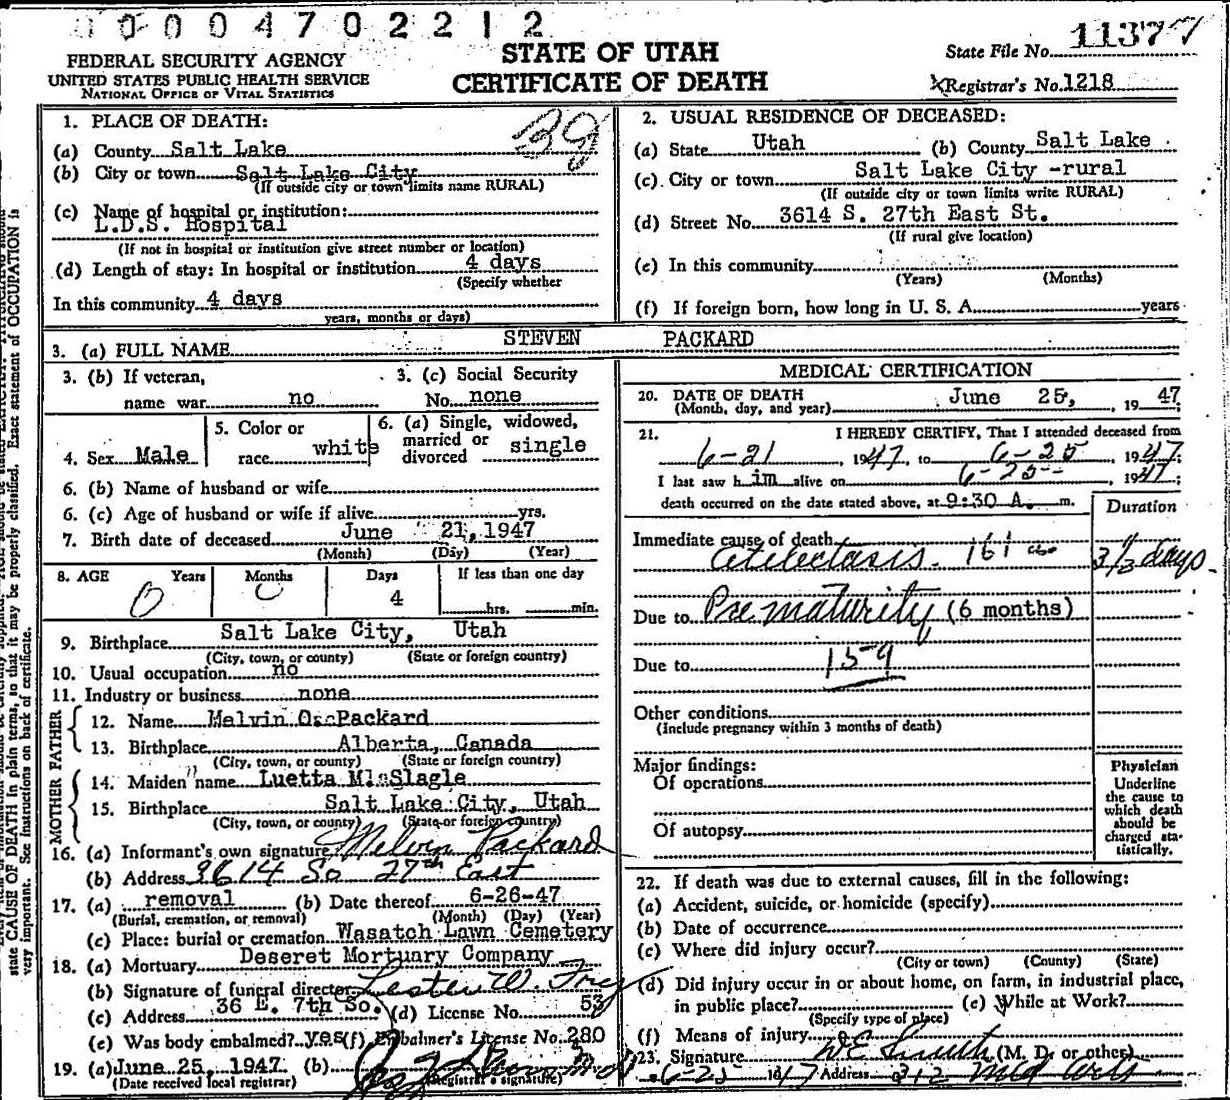 0 0 0 0 4 7 0 2 2 1 2
FEDERAL SECURITY AGENCY
UNITED STATES PUBLIC HEALTH SERVICE
NATIONAL OFFICE OF VITAL STATISTICS
STATE OF UTAH
CERTIFICATE OF DEATH
State File No. 11377
Registrar's No. 1218
1. PLACE OF DEATH:
39
(a) County Salt Lake
(b) City or town Salt Lake City
(If outside city or town limits name RURAL)
(c) Name of hospital or institution:
L.D.S. Hospital
(If not in hospital or institution give street number or location)
(d) Length of stay: In hospital or institution 4 days
(Specify whether
In this community 4 days
years, months or days)
2. USUAL RESIDENCE OF DECEASED:
(a) State Utah (b) County Salt Lake
(c) City or town Salt Lake City -rural
(If outside city or town limits write RURAL)
(d) Street No. 3614 S. 27th East St.
(If rural give location)
(e) In this community
(Years) (Months)
(f) If foreign born, how long in U. S. A. years
3. (a) FULL NAME STEVEN PACKARD
3. (b) If veteran,
name war no
3. (c) Social Security
No. none
4. Sex Male
5. Color or
race white
6. (a) Single, widowed,
married or
divorced single
6. (b) Name of husband or wife
6. (c) Age of husband or wife if alive yrs.
7. Birth date of deceased June 21, 1947
(Month) (Day) (Year)
8. AGE Years Months Days If less than one day
0 0 4 hrs. min.
9. Birthplace Salt Lake City, Utah
(City, town, or county) (State or foreign country)
10. Usual occupation no
11. Industry or business none
FATHER
12. Name Melvin Packard
13. Birthplace Alberta, Canada
(City, town, or county) (State or foreign country)
MOTHER
14. Maiden name Luetta Slagle
15. Birthplace Salt Lake City, Utah
(City, town, or county) (State or foreign country)
16. (a) Informant's own signature Melvin Packard
(b) Address 3614 So 27th East
17. (a) removal (b) Date thereof 6-26-47
(Burial, cremation, or removal) (Month) (Day) (Year)
(c) Place: burial or cremation Wasatch Lawn Cemetery
18. (a) Mortuary Deseret Mortuary Company
(b) Signature of funeral director Lester W. Frey
(c) Address 36 E. 7th So. (d) License No. 53
(e) Was body embalmed? yes (f) Embalmer's License No. 280
19. (a) June 25, 1947 (b)
(Date received local registrar) (Registrar's signature)
MEDICAL CERTIFICATION
20. DATE OF DEATH
(Month, day, and year) June 25, 1947
21. I HEREBY CERTIFY, That I attended deceased from
6-21, 1947, to 6-25, 1947;
I last saw him alive on 6-25, 1947;
death occurred on the date stated above, at 9:30 A. m.
Duration
Immediate cause of death
Atelectasis 161 3 1/3 days
Due to Prematurity (6 months)
Due to 159
Other conditions
(Include pregnancy within 3 months of death)
Major findings:
Of operations
Of autopsy
Physician
Underline
the cause to
which death
should be
charged sta-
tistically.
22. If death was due to external causes, fill in the following:
(a) Accident, suicide, or homicide (specify)
(b) Date of occurrence
(c) Where did injury occur?
(City or town) (County) (State)
(d) Did injury occur in or about home, on farm, in industrial place,
in public place? (e) While at Work?
(Specify type of place)
(f) Means of injury
23. Signature (M. D. or other)
6-25 1947 Address 312
state CAUSE OF DEATH in plain terms, so that it may be properly classified. Exact statement of OCCUPATION is
very important. See instructions on back of certificate.